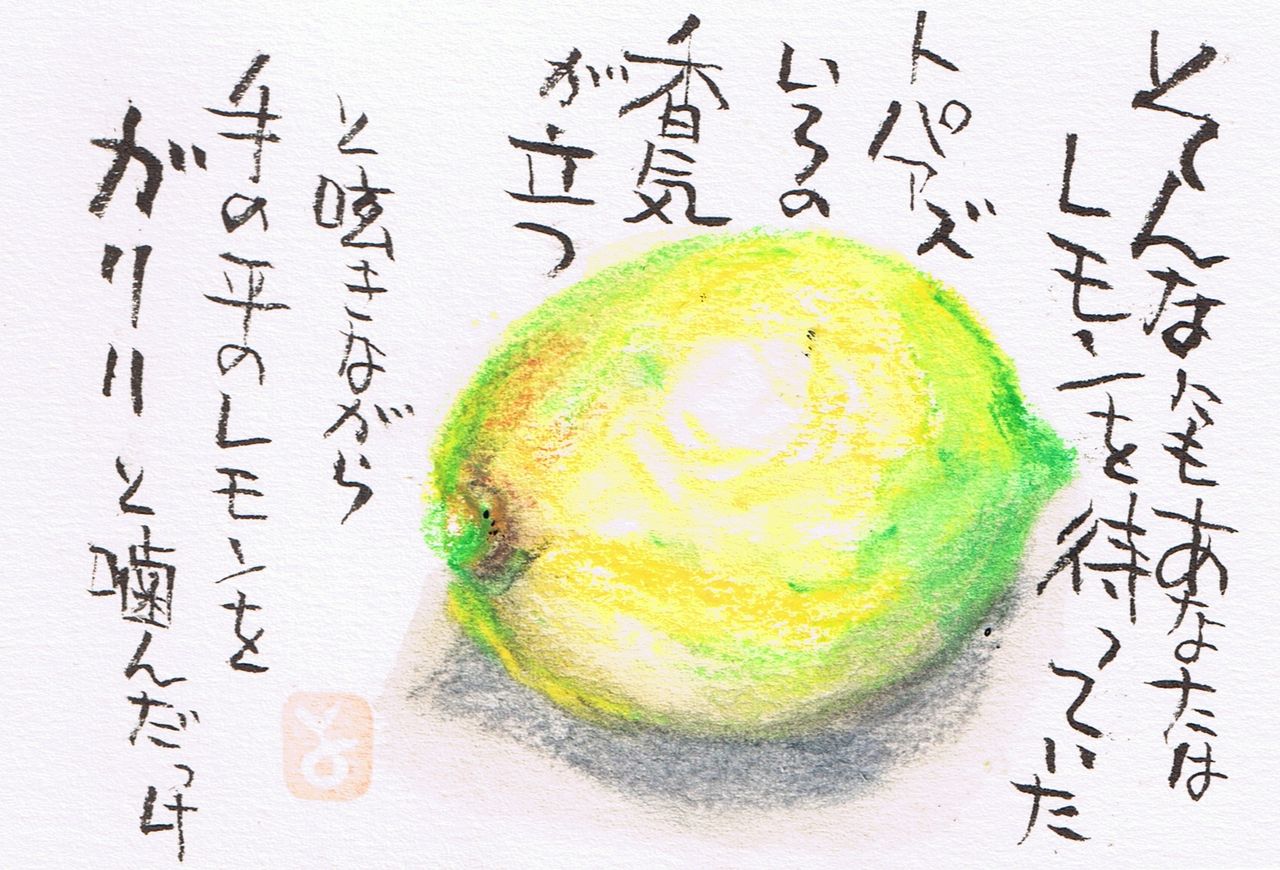 そんなにもあなたは
レモンを待っていた
トパァズ
いろの
香気
が立つ
と呟きながら
手の平のレモンを
がリリと噛んだっけ
と